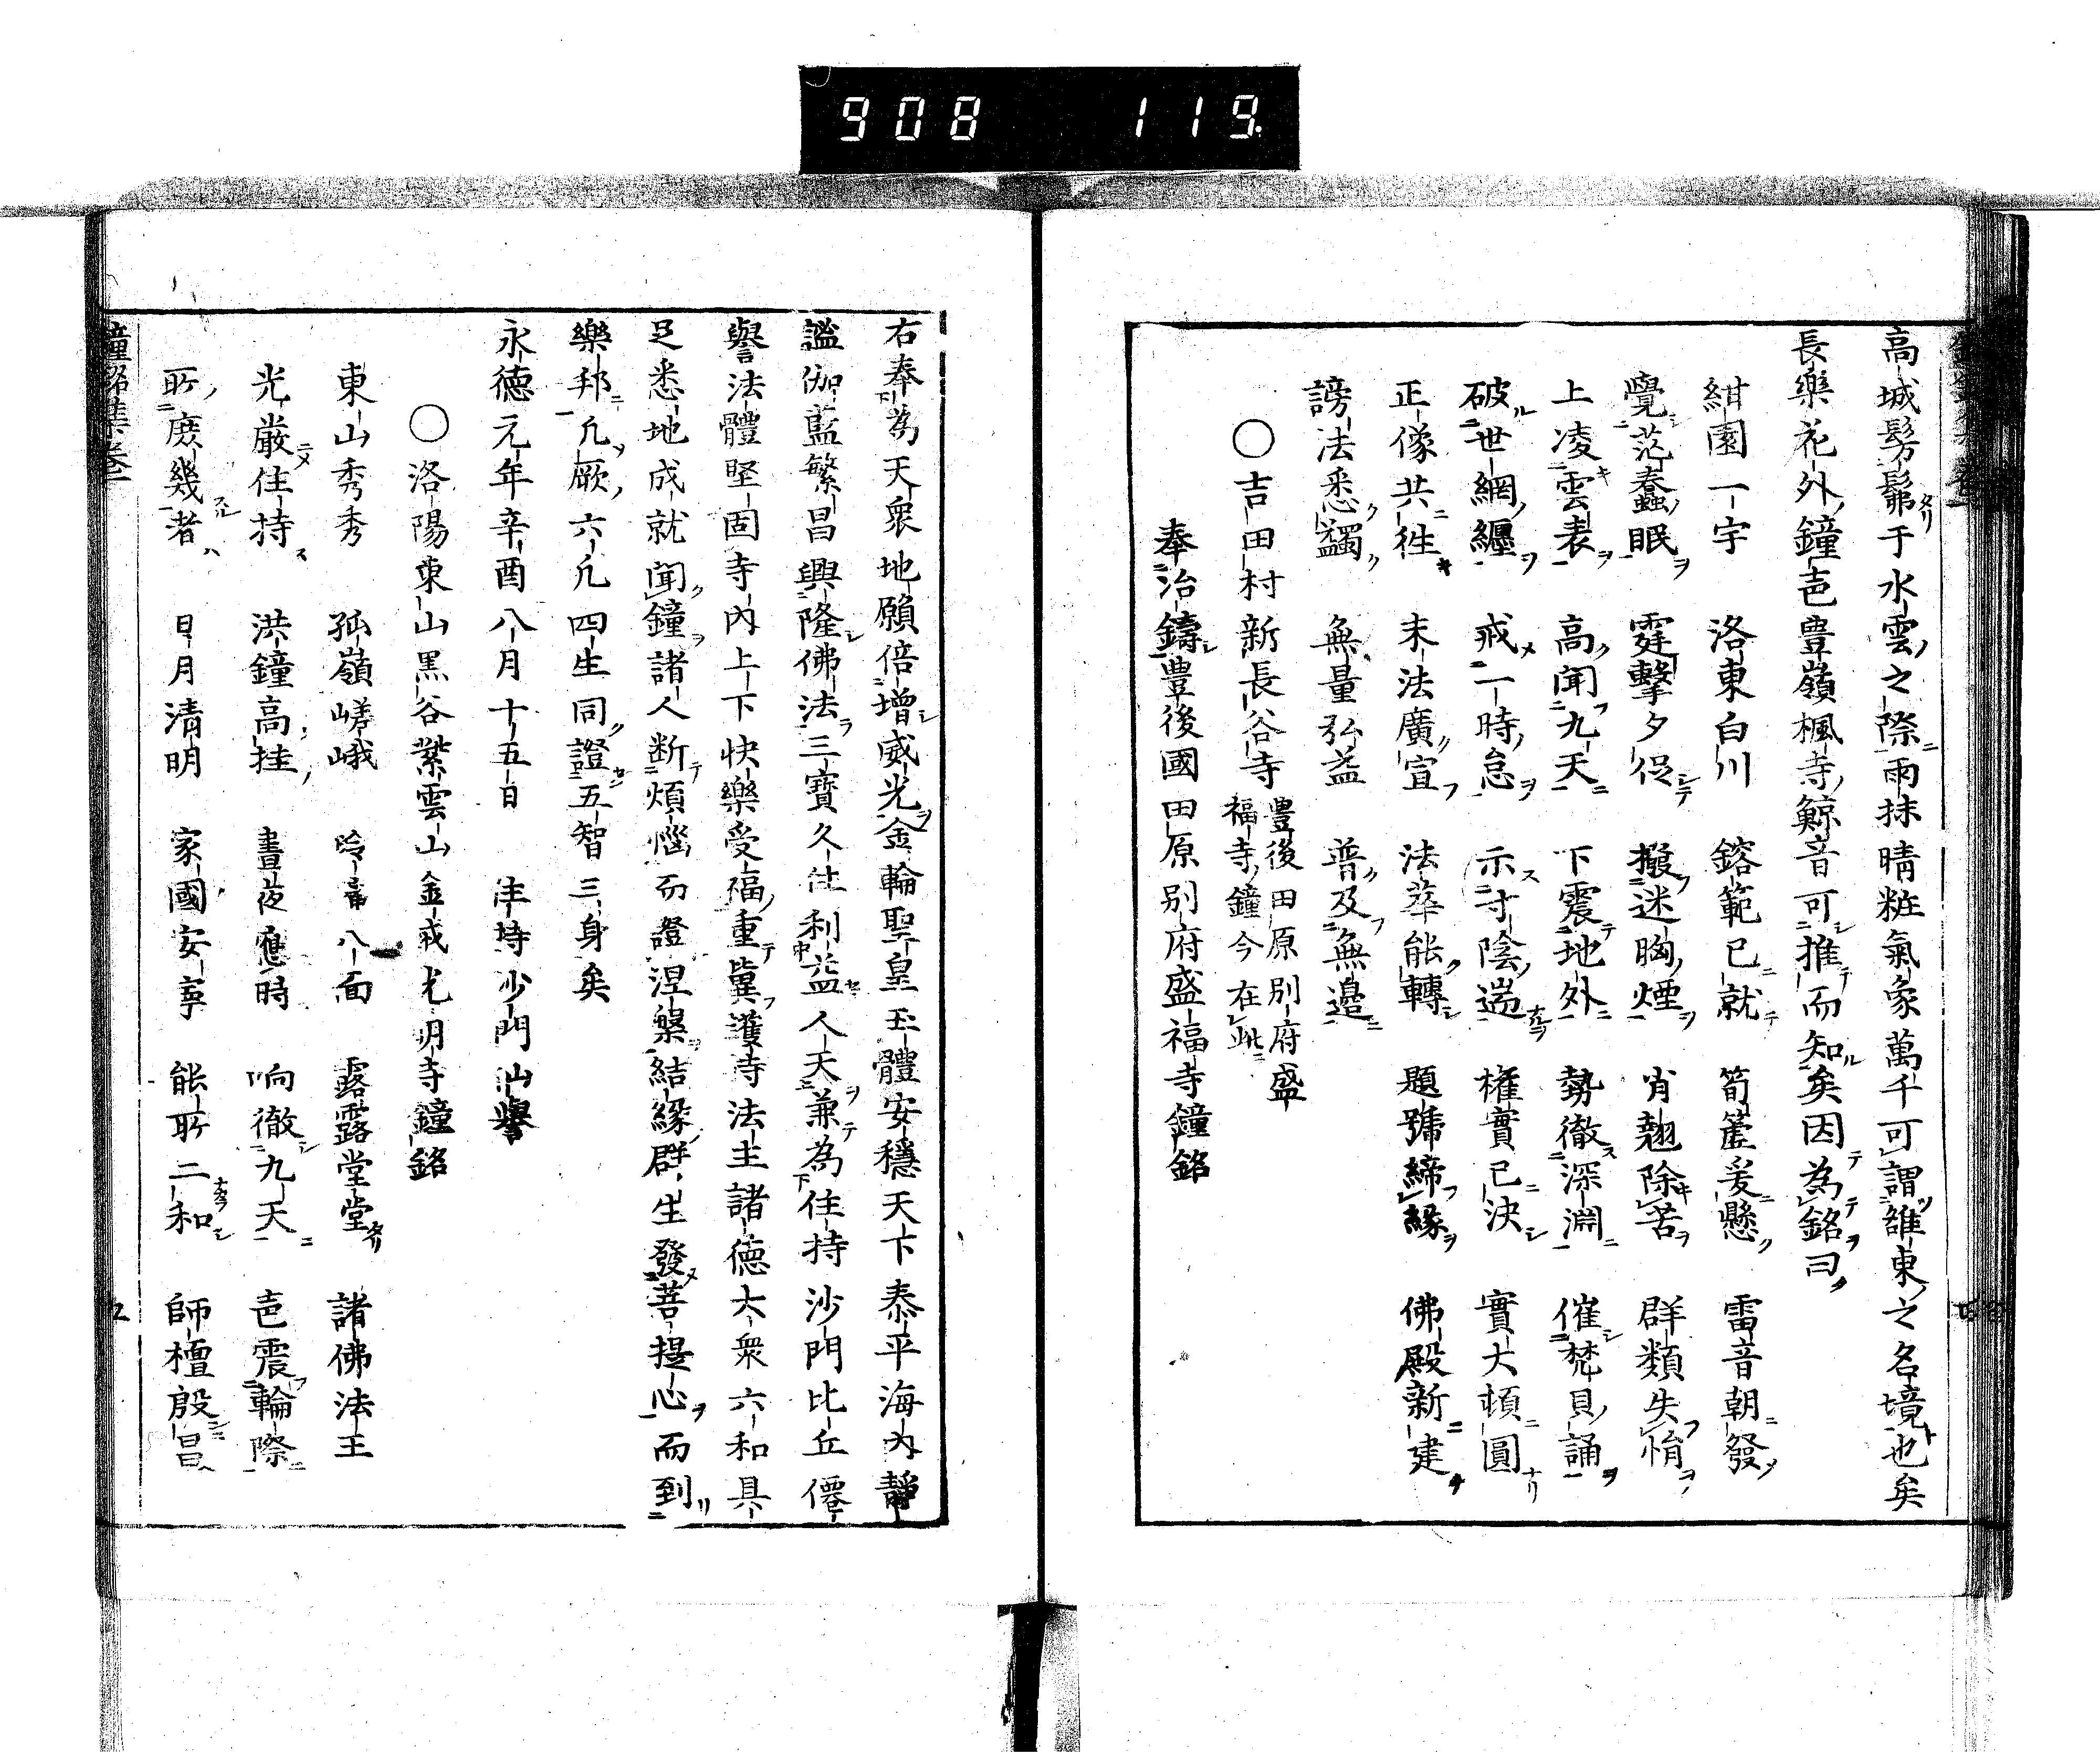 908 119
高城髣髴于水雲之際雨抹晴粧氣象萬千可謂雒東之名境也矣
長樂花外鐘声豊嶺楓寺鯨音可推而知矣因為銘曰
紺園一宇 洛東白川 鎔範已就 筍簴爰懸 雷音朝發
覺范蠢眠 霆擊夕促 撥迷胸煙 肖翹除苦 群類失悁
上凌雲表 高聞九天 下震地外 勢徹深淵 催梵貝誦
破世網纏 戒二時怠 示寸陰遄 權實已決 實大頓圓
正像共徃 末法廣宣 法華能轉 題號締緣 佛殿新建
謗法悉蠲 無量弘益 普及無邊
〇吉田村新長谷寺 豊後田原別府盛
福寺鐘今在此
奉冶鑄豊後國田原別府盛福寺鐘銘
右奉為天衆地願倍增威光金輪聖皇玉體安穩天下泰平海內靜
謐伽藍繁昌興隆佛法三寶久住利益人天兼為住持沙門比丘僊
譽法體堅固寺內上下快樂受福重冀護寺法主諸德大衆六和具
足悉地成就聞鐘諸人断煩惱而證涅槃結緣群生發菩提心而到
樂邦凢厥六凢四生同證五智三身矣
永德元年辛酉八月十五日 住持沙門仙譽
〇洛陽東山黑谷紫雲山金戒光明寺鐘銘
東山秀秀 孤嶺嵯峨 八面 露露堂堂 諸佛法王
光嚴住持 洪鐘高挂 晝夜應時 响徹九天 声震輪際
所庶幾者 日月清明 家國安寧 能所二和 師檀殷昌
鐘銘集卷一